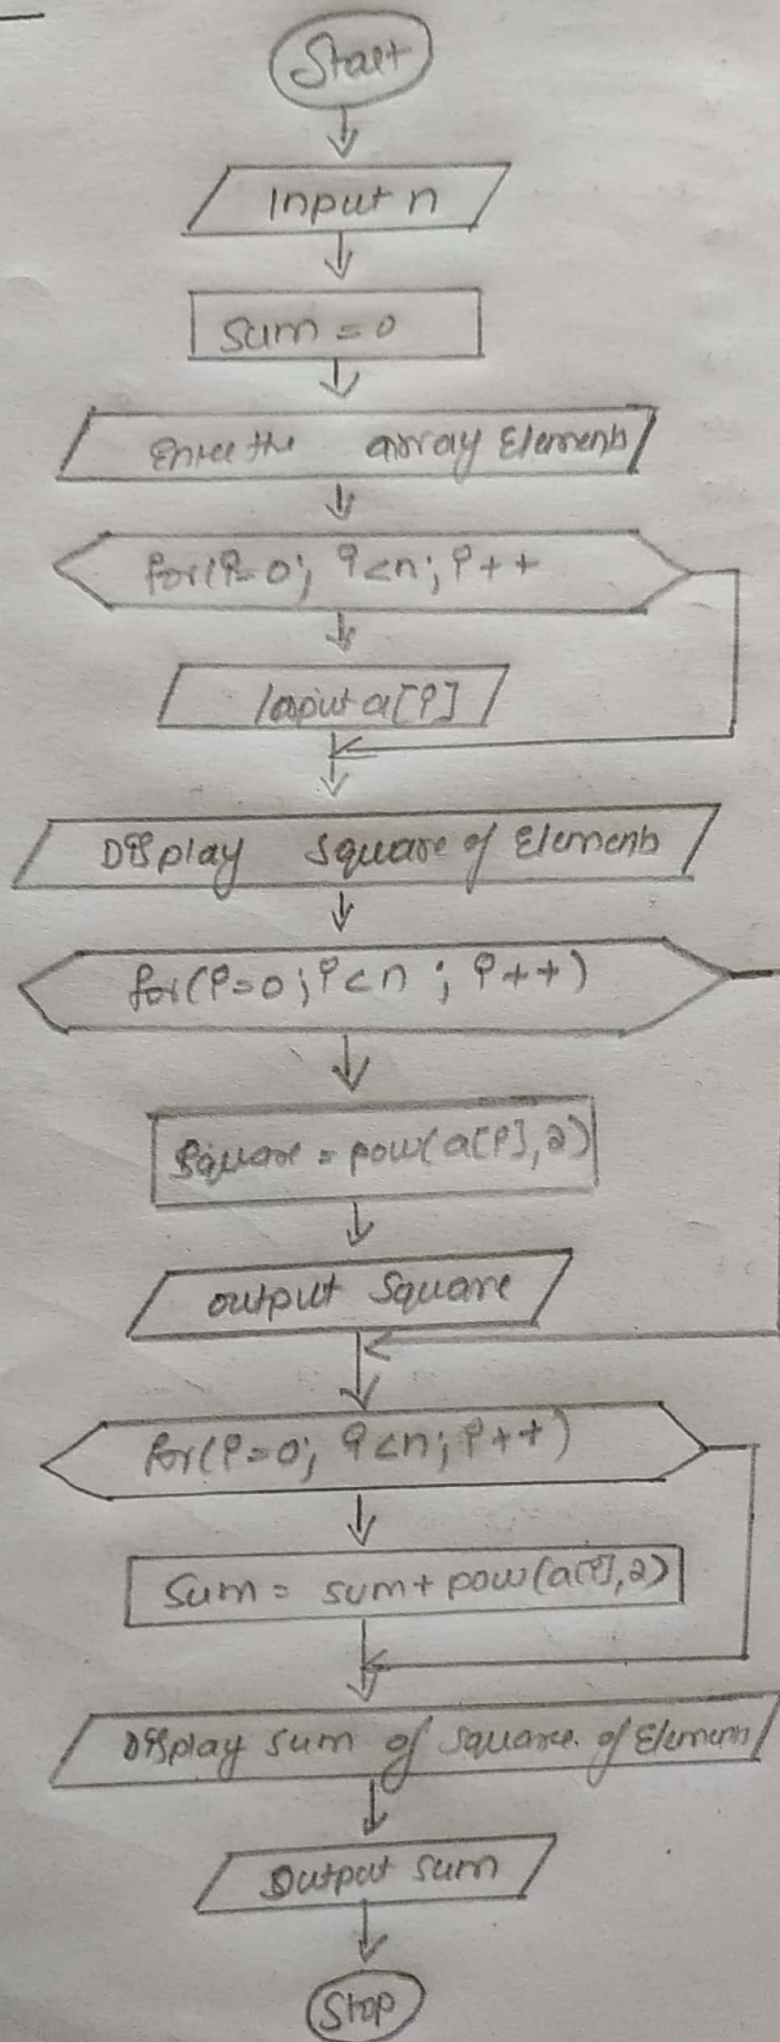 Start
Input n
Sum = 0
Enter the array Elements
for(i=0; i<n; i++
Input a[i]
Display square of Elements
for(i=0; i<n; i++)
Square = pow(a[i],2)
output Square
for(i=0; i<n; i++)
Sum = sum+pow(a[i],2)
Display sum of square of Elements
Output sum
Stop